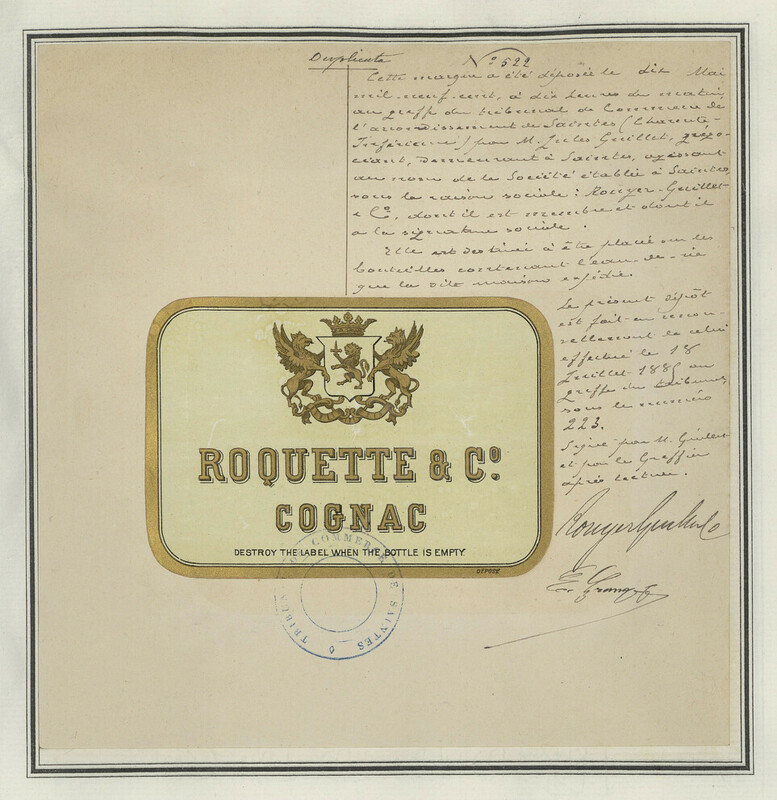 Duplicata
N° 522
Cette marque a été déposée le dix Mai
mil-neuf-cent, à dix heures du matin,
au greffe du tribunal de Commerce de
l'arrondissement de Saintes (Charente-
Inférieure) par M. Jules Guillet, négo-
ciant, demeurant à Saintes, agissant
au nom de la Société établie à Saintes,
sous la raison sociale : Rouyer-Guillet
& Co, dont il est membre et dont il
a la signature sociale.
Elle est destinée à être placée sur les
bouteilles contenant l'eau-de-vie
que la dite maison expédie.
Le présent dépôt
est fait en renou-
vellement de celui
effectué le 18
Juillet 1885 au
greffe du tribunal
sous le numéro
223.
Signé par M. Guillet
et par le Greffier
après lecture.
Rouyer Guillet & Co
ROQUETTE & Co.
COGNAC
DESTROY THE LABEL WHEN THE BOTTLE IS EMPTY
DÉPOSÉ
TRIBUNAL DE COMMERCE DE SAINTES